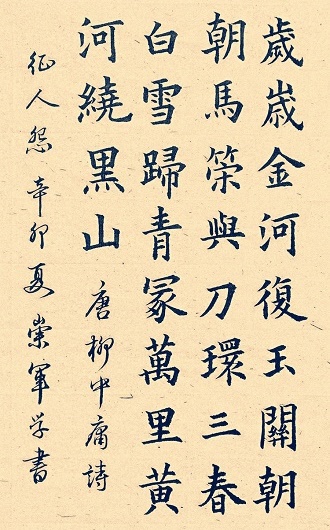 歲歲金河復玉關朝
朝馬策與刀環三春
白雪歸青冢萬里黃
河繞黑山
唐柳中庸詩
征人怨辛卯夏崇軍学書